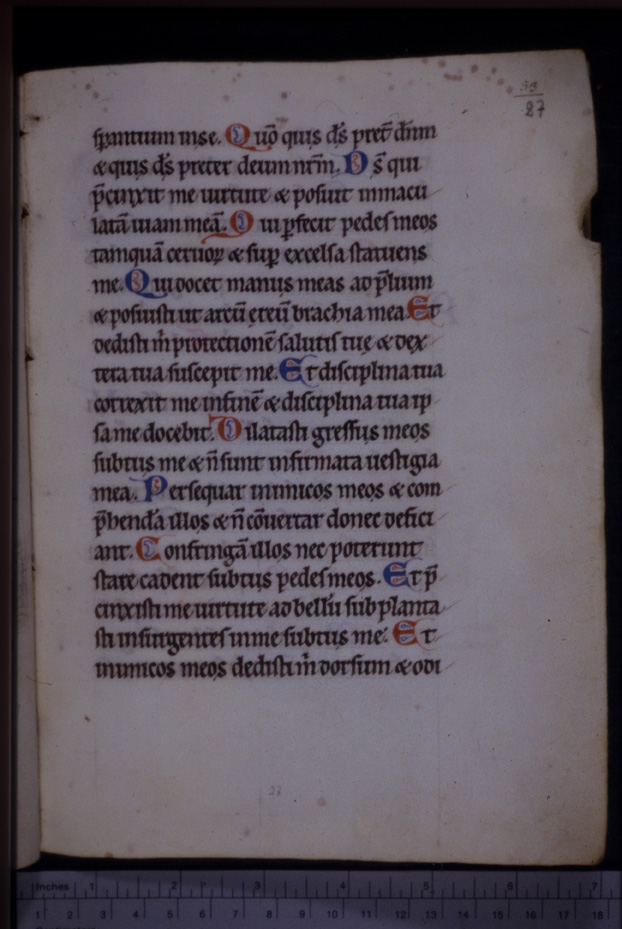 33
27
sp̄antium in se. Quō quis d̄s pret̄ dn̄m
& quis d̄s preter deum nr̄m. D s̄ qui
p̄cinxit me uirtute & posuit inmacu
latā uiam meā. Q ui ꝑfecit pedes meos
tamquā ceruoꝝ & suꝑ excelsa statuens
me. Qui docet manus meas ad p̄lium
& posuisti ut arcū ęreū brachia mea. Et
dedisti m̄ protectionē salutis tuę & dex
tera tua suscepit me. Et disciplina tua
correxit me in finē & disciplina tua ip
sa me docebit. D ilatasti gressus meos
subtus me & n̄ sunt infirmata uestigia
mea. Persequar inimicos meos & com
p̄hendā illos & n̄ cōuertar donec defici
ant. Confringā illos nec poterunt
stare cadent subtus pedes meos. Et p̄
cinxisti me uirtute ad bellū subplanta
sti insurgentes in me subtus me. Et
inimicos meos dedisti m̄ dorsum & odi
27
Inches 1 2 3 4 5 6 7
1 2 3 4 5 6 7 8 9 10 11 12 13 14 15 16 17 18